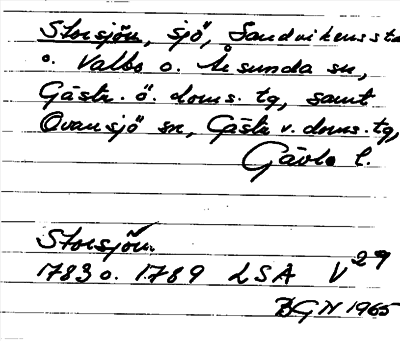 Storsjön, sjö, Sandvikens sta
o. Valbo o. Årsunda sn,
Gästr. ö. doms. tg, samt
Ovansjö sn, Gästr v. doms. tg,
Gävle l.
Storsjön
1783 o. 1789 LSA V 29
BGN 1965